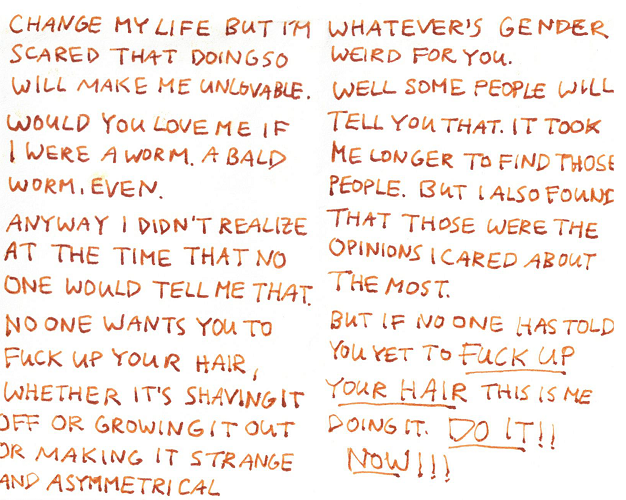 CHANGE MY LIFE BUT I'M
SCARED THAT DOING SO
WILL MAKE ME UNLOVABLE.
WOULD YOU LOVE ME IF
I WERE A WORM. A BALD
WORM, EVEN.
ANYWAY I DIDN'T REALIZE
AT THE TIME THAT NO
ONE WOULD TELL ME THAT.
NO ONE WANTS YOU TO
FUCK UP YOUR HAIR,
WHETHER IT'S SHAVING IT
OFF OR GROWING IT OUT
OR MAKING IT STRANGE
AND ASYMMETRICAL
WHATEVER'S GENDER
WEIRD FOR YOU.
WELL SOME PEOPLE WILL
TELL YOU THAT. IT TOOK
ME LONGER TO FIND THOSE
PEOPLE. BUT I ALSO FOUND
THAT THOSE WERE THE
OPINIONS I CARED ABOUT
THE MOST.
BUT IF NO ONE HAS TOLD
YOU YET TO FUCK UP
YOUR HAIR THIS IS ME
DOING IT. DO IT!!
NOW!!!